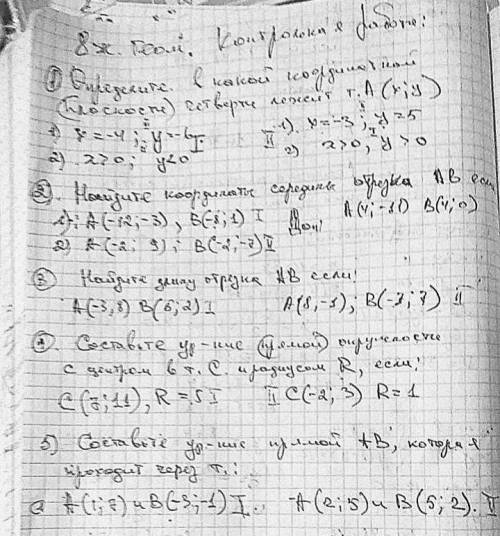 8ж. Геом. Контрольная работа:
① Определите в какой координатной
(плоскости) четверти лежит т. A(x; y)
1) x = -4; y = -6 I II 1). x = -3; y = 5
2) x > 0; y < 0 2) x > 0; y > 0
②. Найдите координаты середины отрезка AB если
1): A(-12; -3), B(-8; 1) I Доп: A(4; -11) B(4; 0)
2) A(-2; 9); B(-2; -7) II
③ Найдите длину отрезка AB если:
A(-3, 8) B(6; 2) I A(8, -1); B(-3; 7) II
④. Составьте ур-ние (прямой) окружности
с центром в т. C. и радиусом R, если:
C(7; 11), R = 5 I II C(-2; 3) R = 1
5) Составьте ур-ние прямой AB, которая
проходит через т.:
A(1; 7) и B(-3; -1) I. A(2; 5) и B(5; 2). II